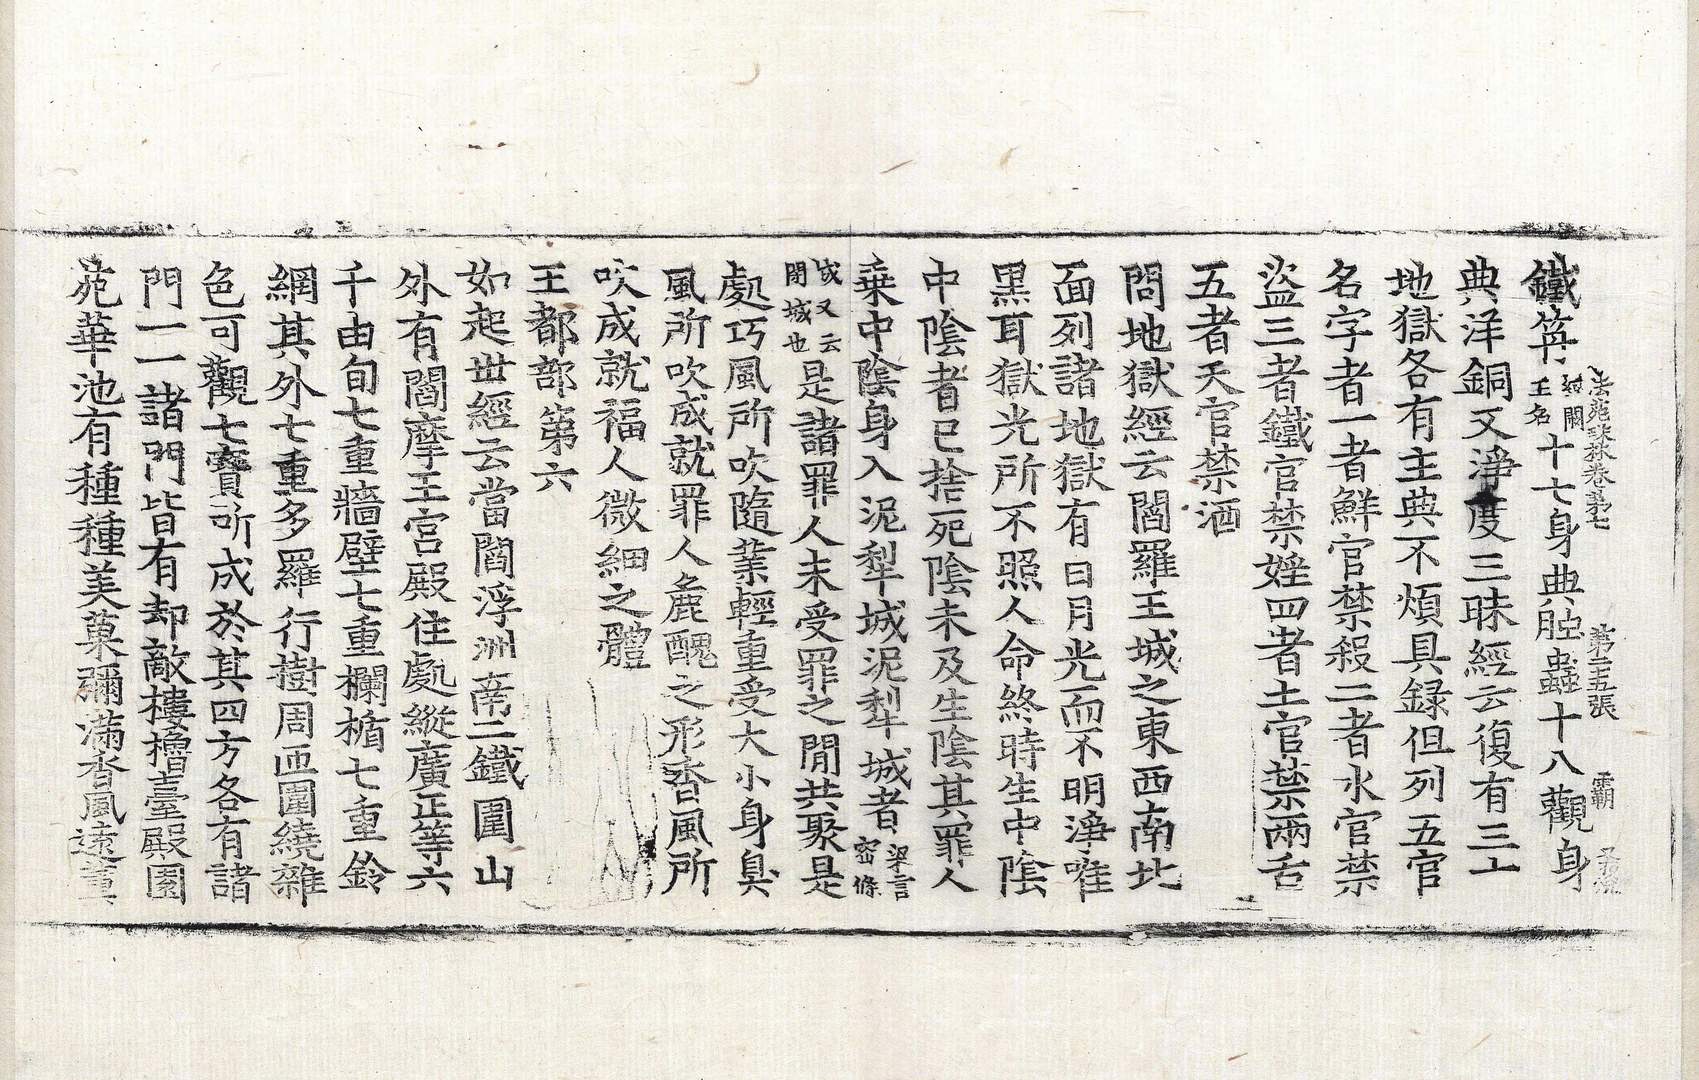 法苑珠林卷第七　第二十五張　霸
鐵笄獄闕王名十七身典蛆蟲十八觀身
典洋銅又淨度三昧經云復有三十
地獄各有主典不煩具録但列五官
名字者一者鮮官禁殺二者水官禁
盜三者鐵官禁婬四者土官禁兩舌
五者天官禁酒
問地獄經云閻羅王城之東西南北
面列諸地獄有日月光而不明淨唯
黑耳獄光所不照人命終時生中陰
中陰者已捨死陰未及生陰其罪人
乗中陰身入泥犁城泥犁城者梁言寄條
城又云閉城也是諸罪人未受罪之閒共聚是
處巧風所吹隨業輕重受大小身臭
風所吹成就罪人麁醜之形香風所
吹成就福人微細之體
王都部第六
如起世經云當閻浮洲南二鐵圍山
外有閻摩王宮殿住處縱廣正等六
千由旬七重牆壁七重欄楯七重鈴
網其外七重多羅行樹周匝圍繞雜
色可觀七寶所成於其四方各有諸
門一一諸門皆有却敵樓櫓臺殿園
苑華池有種種美菓彌滿香風遠薫